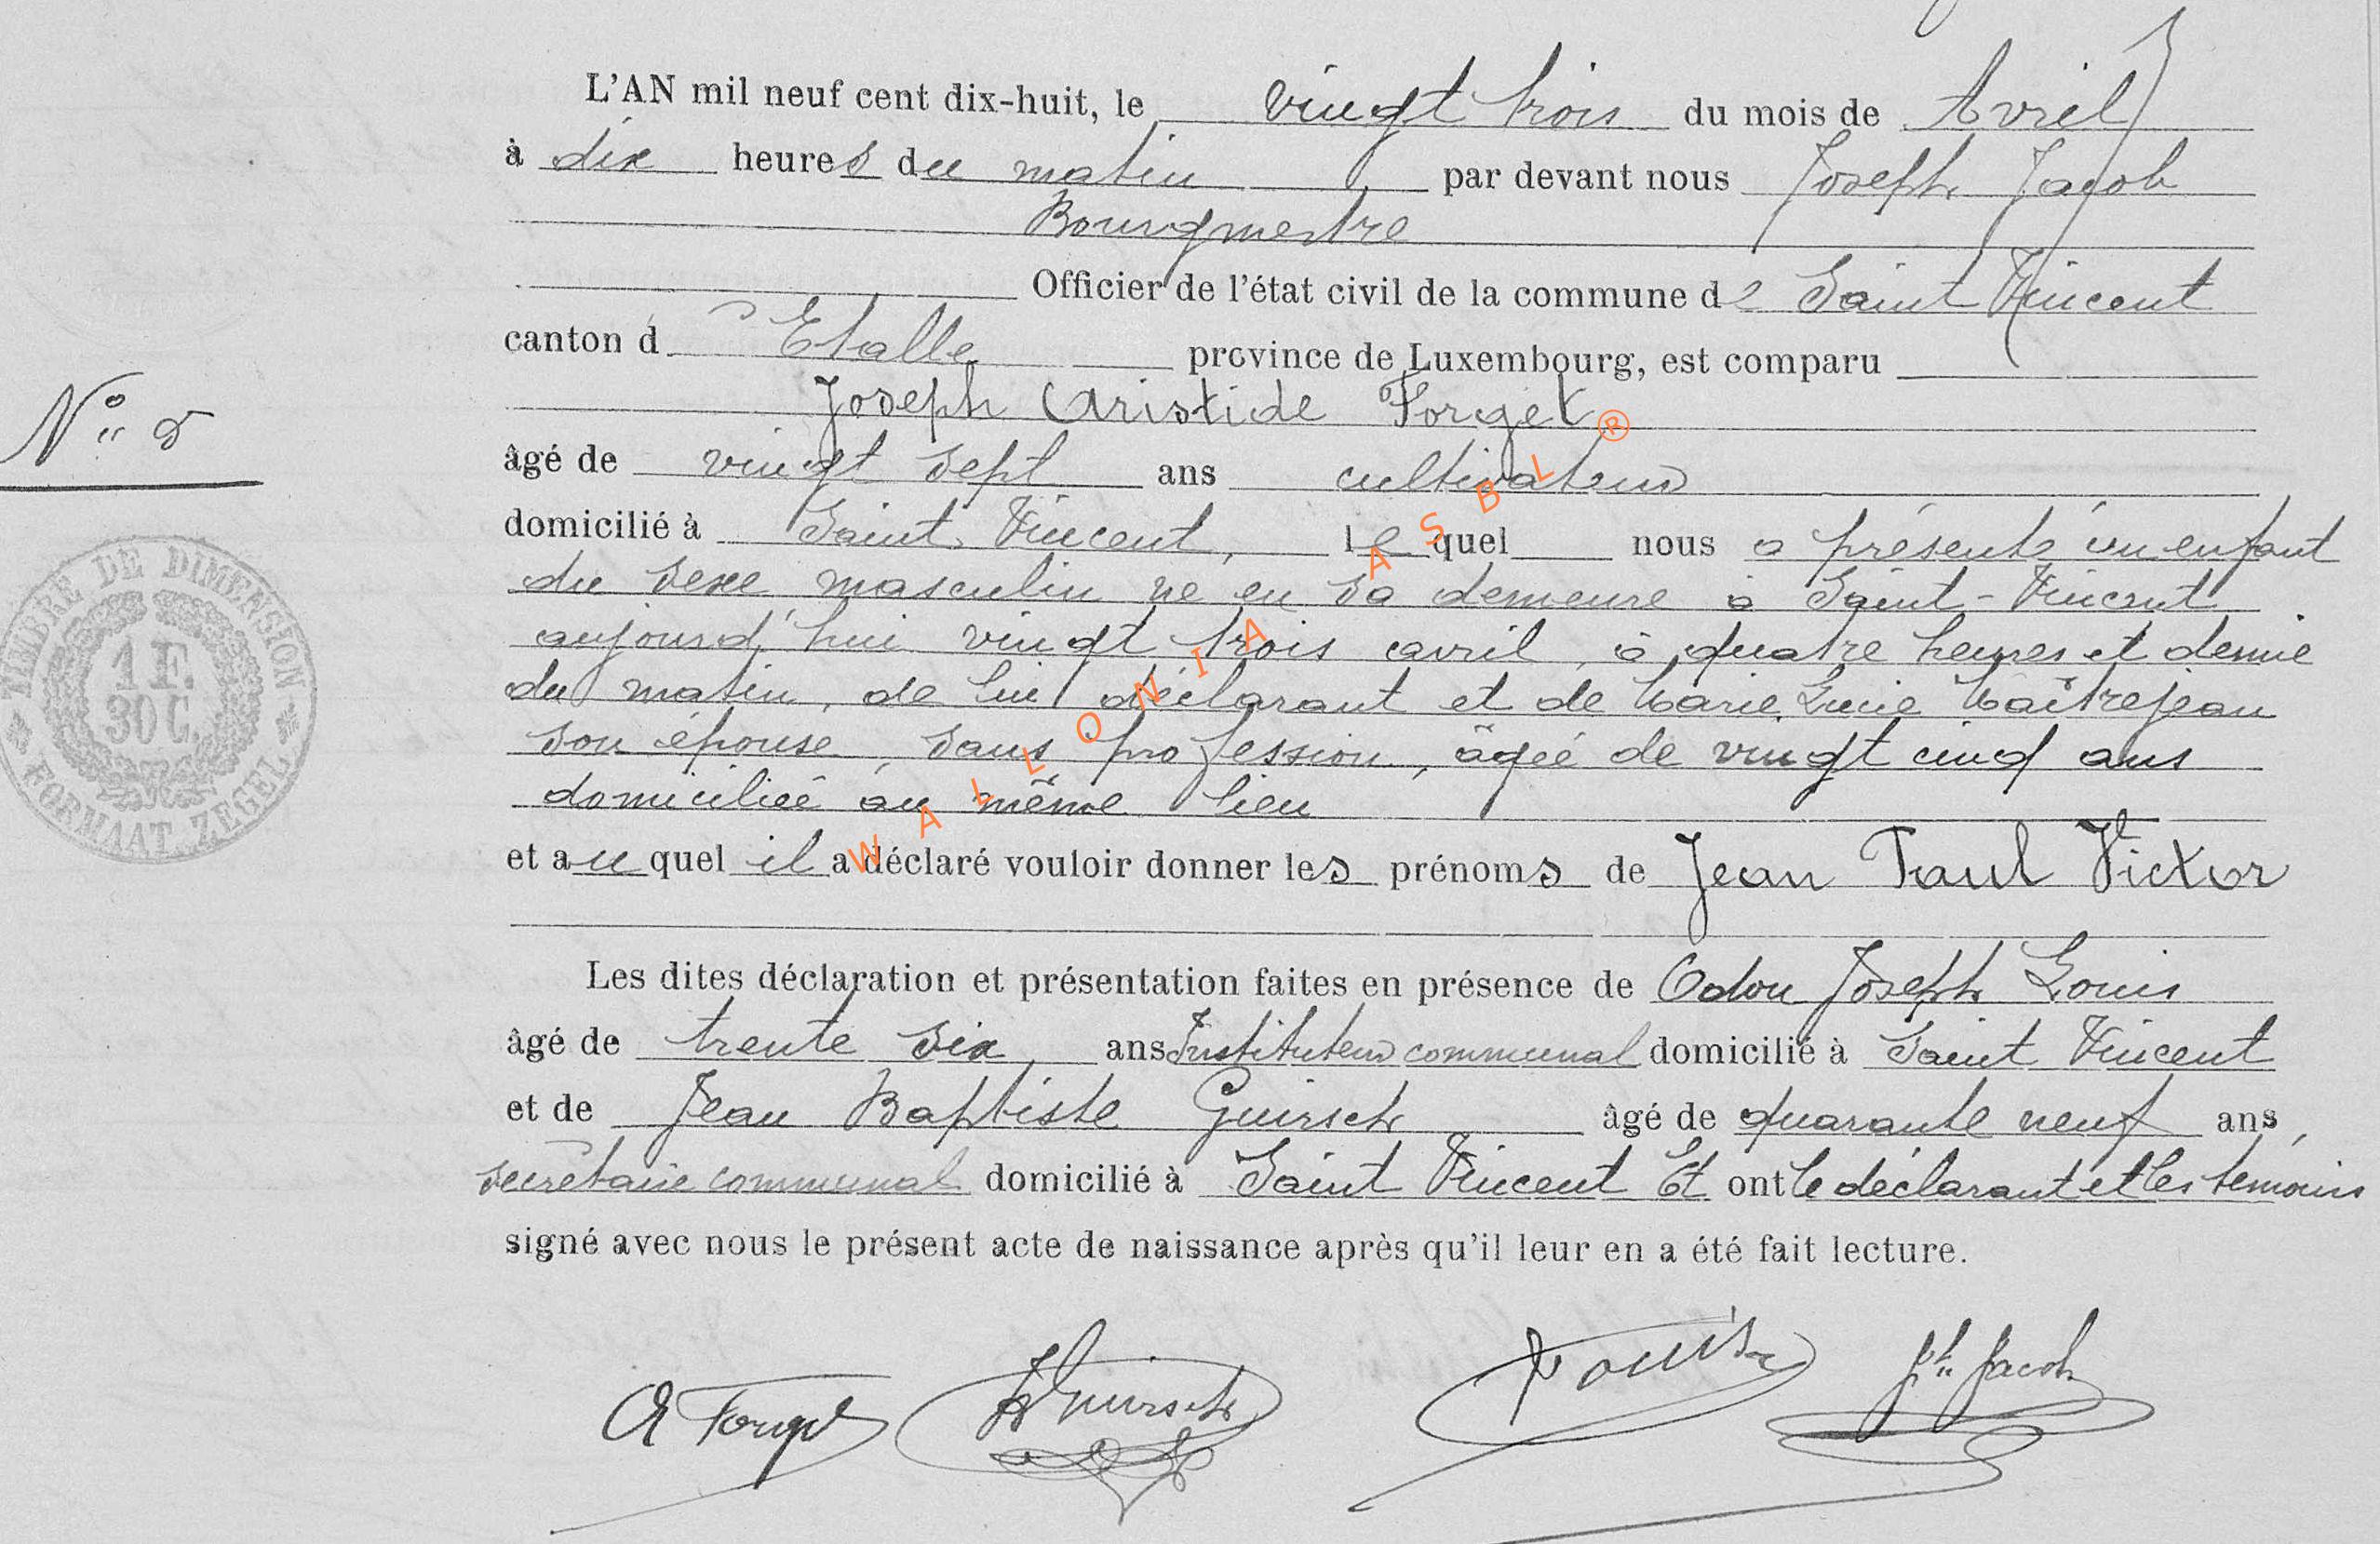 L'AN mil neuf cent dix-huit, le vingt trois du mois de Avril
à dix heures du matin, par devant nous Joseph Jacob
Bourgmestre
Officier de l'état civil de la commune de Saint Vincent
canton d'Etalle province de Luxembourg, est comparu
Joseph Aristide Forget
N°
âgé de vingt sept ans cultivateur
domicilié à Saint Vincent, lequel nous a présenté un enfant
du sexe masculin né en sa demeure à Saint-Vincent
aujourd'hui vingt trois avril, à quatre heures et demie
du matin, de lui déclarant et de Marie Lucie Maîtrejean
son épouse, sans profession, âgée de vingt cinq ans
domiciliée au même lieu
et auquel il a déclaré vouloir donner les prénoms de Jean Paul Victor
Les dites déclaration et présentation faites en présence de Odon Joseph Louis
âgé de trente six, ans Instituteur communal domicilié à Saint Vincent
et de Jean Baptiste Guirsch âgé de quarante neuf ans,
secrétaire communal domicilié à Saint Vincent Et ont le déclarant et les témoins
signé avec nous le présent acte de naissance après qu'il leur en a été fait lecture.
A Forget Guirsch Louis Jh Jacob
TIMBRE DE DIMENSION
1 F.
30 C.
FORMAAT ZEGEL
WALLONIA ASBL ®